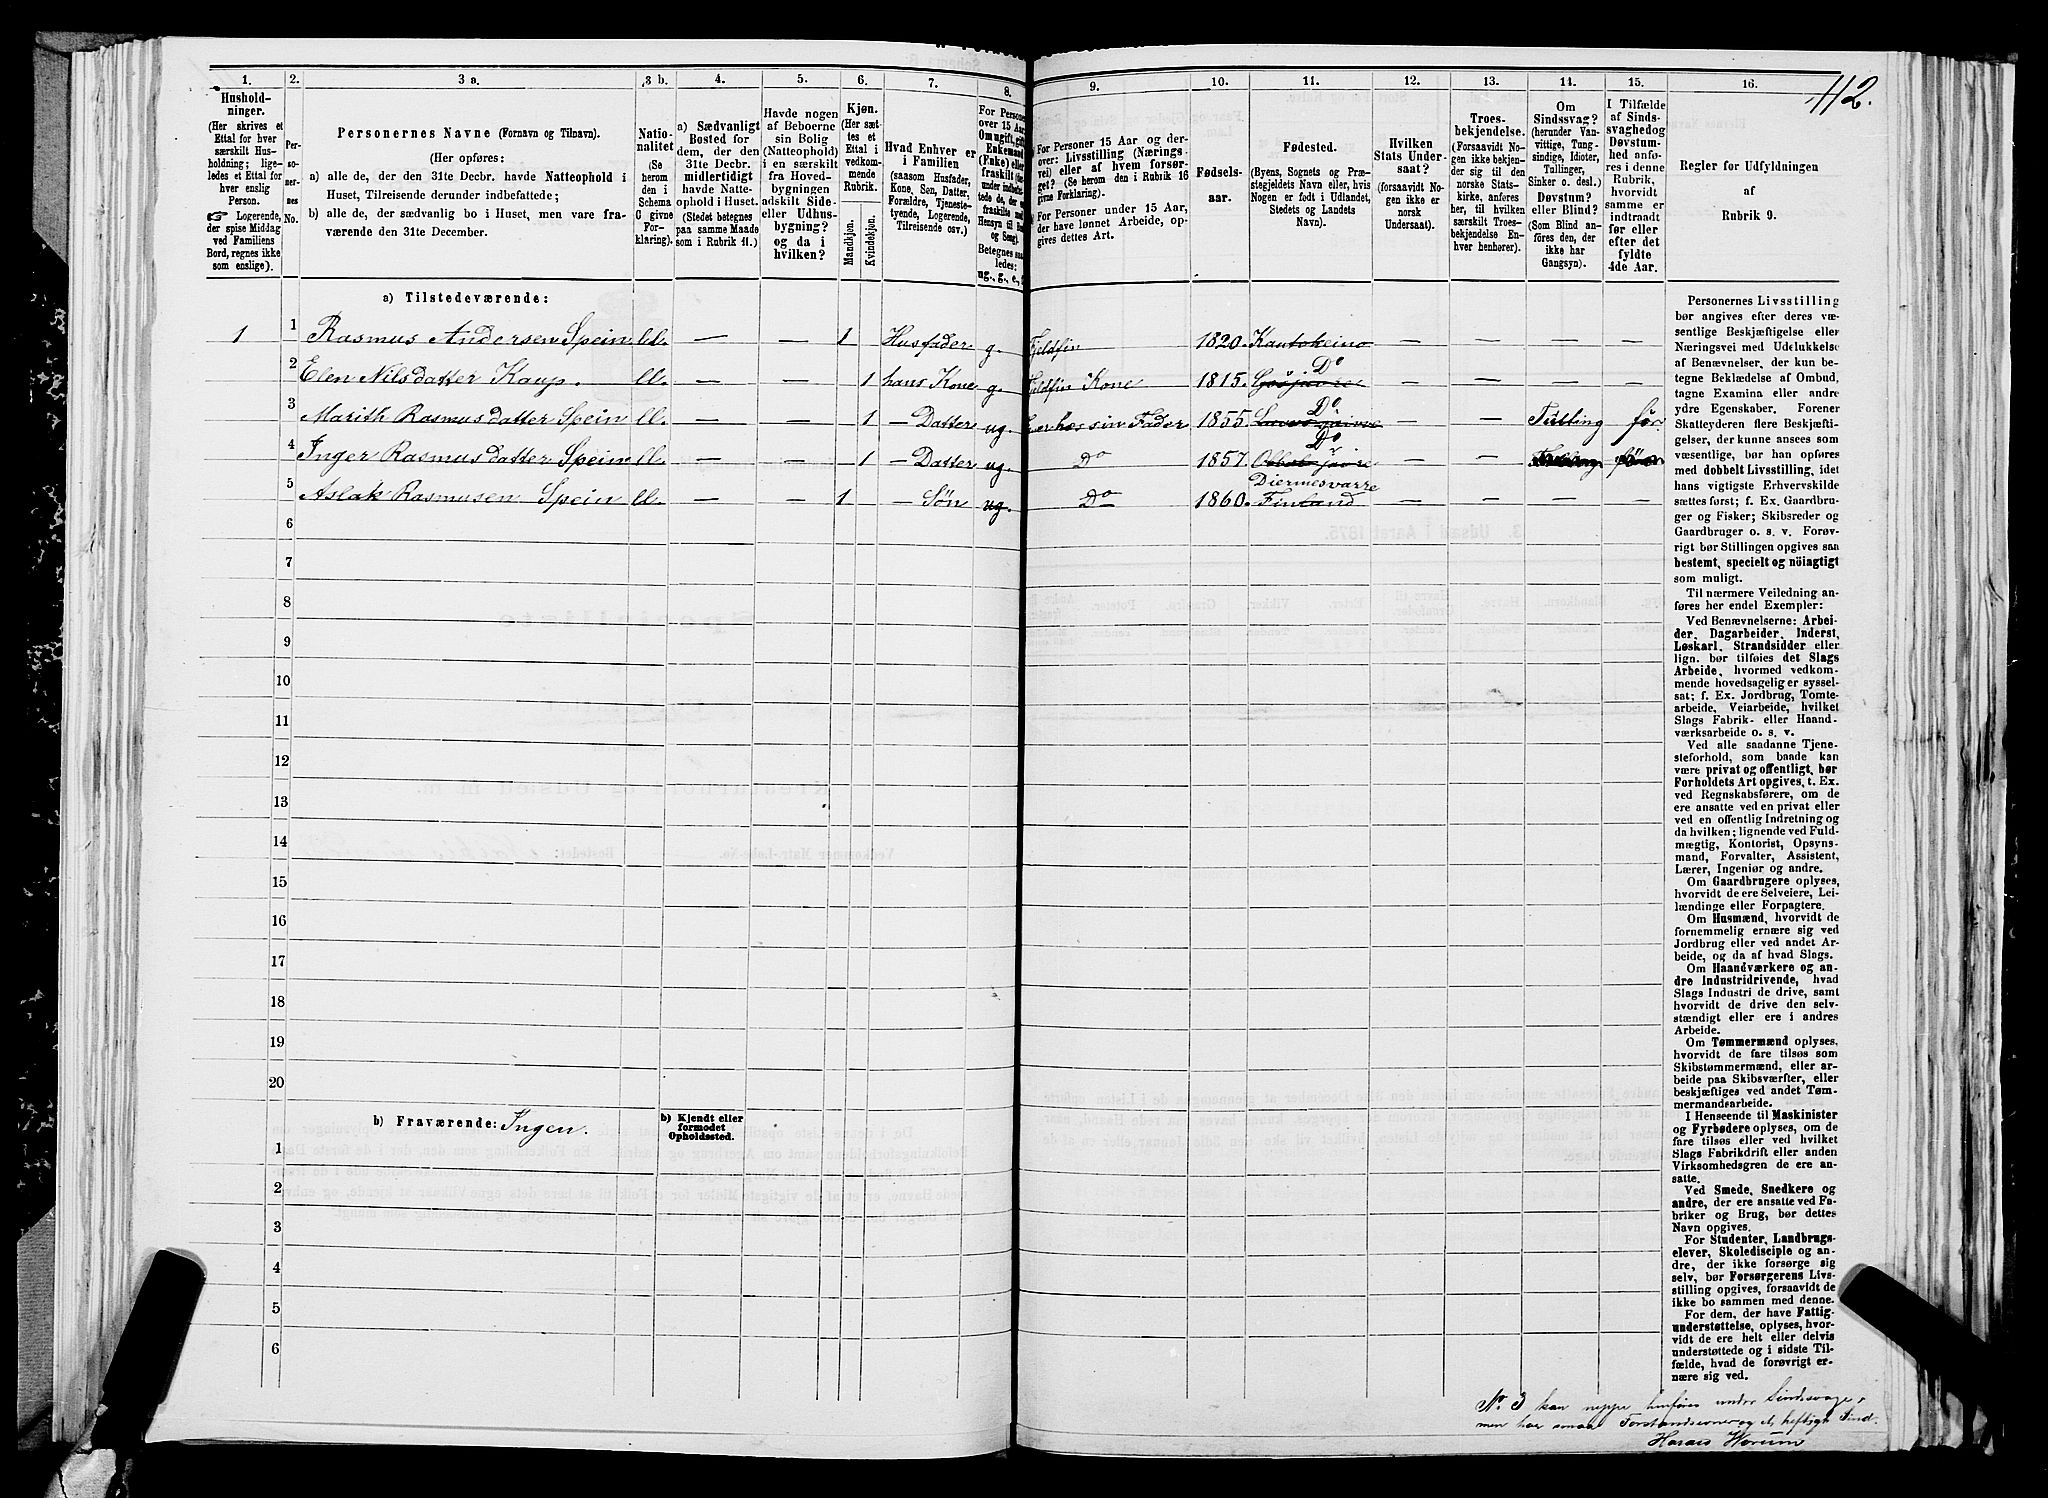 112.
1. 2. 3 a. 3 b. 4. 5. 6. 7. 8. 9. 10. 11. 12. 13. 14. 15. 16.
Hushold-
ninger.
(Her skrives et
Ettal for hver
særskilt Hus-
holdning; lige-
ledes et Ettal for
hver enslig
Person.
Logerende,
der spise Middag
ved Familiens
Bord, regnes ikke
som enslige).
Per-
so-
ner-
nes
No.
Personernes Navne (Fornavn og Tilnavn).
(Her opføres:
a) alle de, der den 31te Decbr. havde Natteophold i
Huset, Tilreisende derunder indbefattede;
b) alle de, der sædvanlig bo i Huset, men vare fra-
værende den 31te December.
Natio-
nalitet
(Se
herom
den i
Schema
C givne
For-
klaring).
a) Sædvanligt
Bosted for
dem, der den
31te Decbr.
midlertidigt
havde Natte-
ophold i Huset.
(Stedet betegnes
paa samme Maade
som i Rubrik 11.)
Havde nogen
af Beboerne
sin Bolig
(Natteophold)
i en særskilt
fra Hoved-
bygningen
adskilt Side-
eller Udhus-
bygning?
og da i
hvilken?
Kjøn.
(Her sæt-
tes et
Ettal i
vedkom-
mende
Rubrik.
Mandkjøn.
Kvindekjøn.
Hvad Enhver er
i Familien
(saasom Husfader,
Kone, Søn, Datter,
Forældre, Tjeneste-
tyende, Logerende,
Tilreisende osv.).
For Persone
over 15 Aar
Om ugift, gift
Enkemand
(Enke) eller
fraskilt
og Seng).
Betegnes saa-
ledes:
ug., g., e.,
For Personer 15 Aar og der-
over: Livsstilling (Nærings-
vei) eller af hvem forsør-
get? (Se herom den i Rubrik 16
givne Forklaring).
For Personer under 15 Aar,
der have lønnet Arbeide, op-
gives dettes Art.
Fødsels-
aar.
Fødested.
(Byens, Sognets og Præ-
stegjeldets Navn eller, hvis
Nogen er født i Udlandet,
Stedets og Landets
Navn).
Hvilken
Stats Under-
saat?
(forsaavidt No-
gen ikke er
norsk
Undersaat).
Troes-
bekjendelse.
(Forsaavidt No-
gen ikke bekjen-
der sig til den
norske Stats-
kirke, anføres
her, til hvilken
særskilt Troes-
bekjendelse En-
hver henhører).
Om
Sindssvag?
(herunder Van-
vittige, Tung-
sindige, Idioter,
Tullinger,
Sinker o. desl.)
Døvstum?
eller Blind?
(Som Blind an-
føres den, der
ikke har
Gangsyn).
I Tilfælde
af Sinds-
svaghed og
Døvstum-
hed anfø-
res i denne
Rubrik,
hvorvidt
samme er
indtraadt
før eller
efter det
fyldte
4de Aar.
Regler for Udfyldningen
af
Rubrik 9.
a) Tilstedeværende:
1 1 Rasmus Andersen Spein ll. — — 1 Husfader g. Fjeldfin 1820. Kautokeino — — — —
Do
2 Elen Nilsdatter Kaup. ll. — — 1 hans Kone g. Fjeldfin Kone 1815. — — — —
Do
3 Marith Rasmusdatter Spein ll. — — 1 — Datter ug. Er hos sin Fader 1855. — — Tulling før
Do
4 Inger Rasmusdatter Spein ll. — — 1 — Datter ug. Do 1857. — —
Diermesvarre
5 Aslak Rasmusen Spein ll. — — 1 — Søn ug. Do 1860. Finland — — — —
6
7
8
9
10
11
12
13
14
15
16
17
18
19
20
b) Fraværende: Ingen.
b) Kjendt eller
formodet
Opholdssted.
1
2
3
4
5
6
Personernes Livsstilling
bør angives efter deres væ-
sentlige Beskjæftigelse eller
Næringsvei med Udelukkelse
af Benævnelser, der kun be-
tegne Beklædelse af Ombud,
tagne Examina eller andre
ydre Egenskaber. Forener
Skatteyderen flere Beskjæfti-
gelser, der kunne ansees som
væsentlige, bør han opføres
med dobbelt Livsstilling, idet
hans vigtigste Erhvervskilde
sættes først; f. Ex. Gaardbru-
ger og Fisker; Skibsreder og
Gaardbruger o. s. v. Forøv-
rigt bør Stillingen opgives saa
bestemt, specielt og nöiagtigt
som muligt.
Til nærmere Veiledning an-
føres her endel Exempler:
Ved Benævnelserne: Arbei-
der, Dagarbeider, Inderst,
Løskarl, Strandsidder eller
lign. bør tilføies det Slags
Arbeide, hvormed vedkom-
mende hovedsagelig er syssel-
sat; f. Ex. Jordbrug, Tomte-
arbeide, Veiarbeide, hvilket
Slags Fabrik- eller Haand-
værksarbeide o. s. v.
Ved alle saadanne Tjene-
steforhold, som baade kan
være privat og offentligt, bør
Forholdets Art opgives, t. Ex.
ved Regnskabsførere, om de
ere ansatte ved en privat eller
ved en offentlig Indretning og
da hvilken; lignende ved Fuld-
mægtig, Kontorist, Opsyns-
mand, Forvalter, Assistent,
Lærer, Ingeniør og andre.
Om Gaardbrugere oplyses,
hvorvidt de ere Selveiere, Lei-
lændinge eller Forpagtere.
Om Husmænd, hvorvidt de
fornemmelig ernære sig ved
Jordbrug eller ved andet Ar-
beide, og da af hvad Slags.
Om Haandværkere og an-
dre Industridrivende, hvad
Slags Industri de drive, samt
hvorvidt de drive den selv-
stændigt eller ere i andres
Arbeide.
Om Tømmermænd oplyses,
hvorvidt de fare tilsøs som
Skibstømmermænd, eller ar-
beide paa Skibsværfter, eller
beskjæftiges ved andet Tøm-
mermandarbeide.
I Henseende til Maskinister
og Fyrbødere oplyses, om de
fare tilsøs eller ved hvilket
Slags Fabrikdrift eller anden
Virksomhedsgren de ere an-
satte.
Ved Smede, Snedkere og
andre, der ere ansatte ved Fa-
briker og Brug, bør dettes
Navn opgives.
For Studenter, Landbrugs-
elever, Skoledisciple og an-
dre, der ikke forsørge sig
selv, bør Forsørgerens Livs-
stilling opgives, forsaavidt de
ikke bo sammen med denne.
For dem, der have Fattig-
understøttelse, oplyses, hvor-
vidt de ere helt eller delvis
understøttede og i sidste Til-
fælde, hvad de forøvrigt er-
nære sig ved.
No 3 kan neppe henføres under Sindssvage,
men har smaa Forstandsevner og et heftigt Sind.